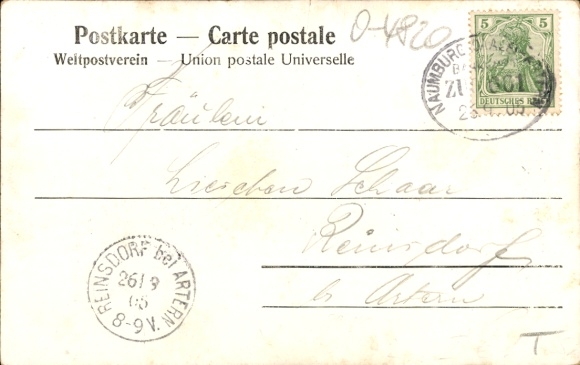 Postkarte — Carte postale
Weltpostverein — Union postale Universelle
0-4820
5 5
DEUTSCHES REICH
NAUMBURG
ZUG
Fräulein
Lieschen Schaar
Reinsdorf
b/ Artern
REINSDORF bei ARTERN
26 1 9
05
8-9 V.
T